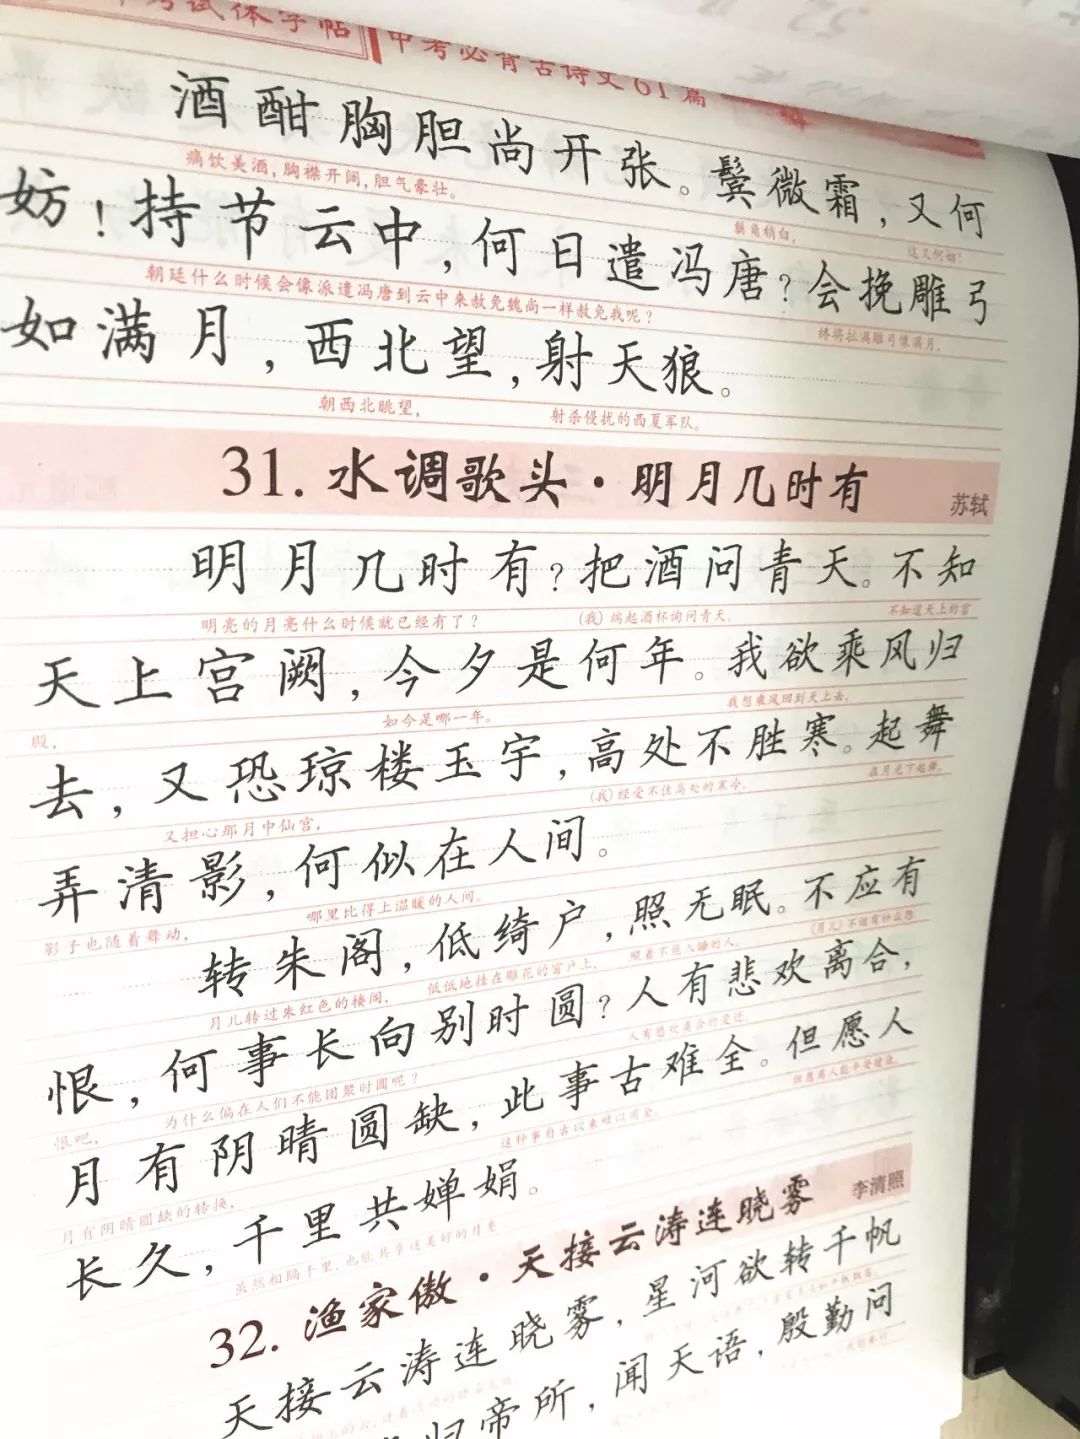 考试体字帖 中考必背古诗文61篇
酒酣胸胆尚开张。鬓微霜,又何
痛饮美酒,胸襟开阔,胆气豪壮。 鬓角稍白, 这又何妨!
妨!持节云中,何日遣冯唐?会挽雕弓
朝廷什么时候会像派遣冯唐到云中来赦免魏尚一样赦免我呢? 终将拉满雕弓像满月,
如满月,西北望,射天狼。
朝西北眺望, 射杀侵扰的西夏军队。
31. 水调歌头·明月几时有 苏轼
明月几时有?把酒问青天。不知
明亮的月亮什么时候就已经有了? (我)端起酒杯询问青天。 不知道天上的宫
天上宫阙,今夕是何年。我欲乘风归
殿, 如今是哪一年。 我想乘风回到天上去,
去,又恐琼楼玉宇,高处不胜寒。起舞
又担心那月中仙宫, (我)经受不住高处的寒冷。 在月光下起舞,
弄清影,何似在人间。
影子也随着舞动, 哪里比得上温暖的人间。
转朱阁,低绮户,照无眠。不应有
月儿转过朱红色的楼阁, 低低地挂在雕花的窗户上, 照着不能入睡的人。
恨,何事长向别时圆?人有悲欢离合,
恨吧, 为什么偏在人们不能团聚时圆呢? 人有悲欢离合的变迁,
月有阴晴圆缺,此事古难全。但愿人
月有阴晴圆缺的转换, 这种事自古以来难以周全。
长久,千里共婵娟。
虽然相隔千里,也能共享这美好的月亮
32. 渔家傲·天接云涛连晓雾 李清照
天接云涛连晓雾,星河欲转千帆
归帝所,闻天语,殷勤问